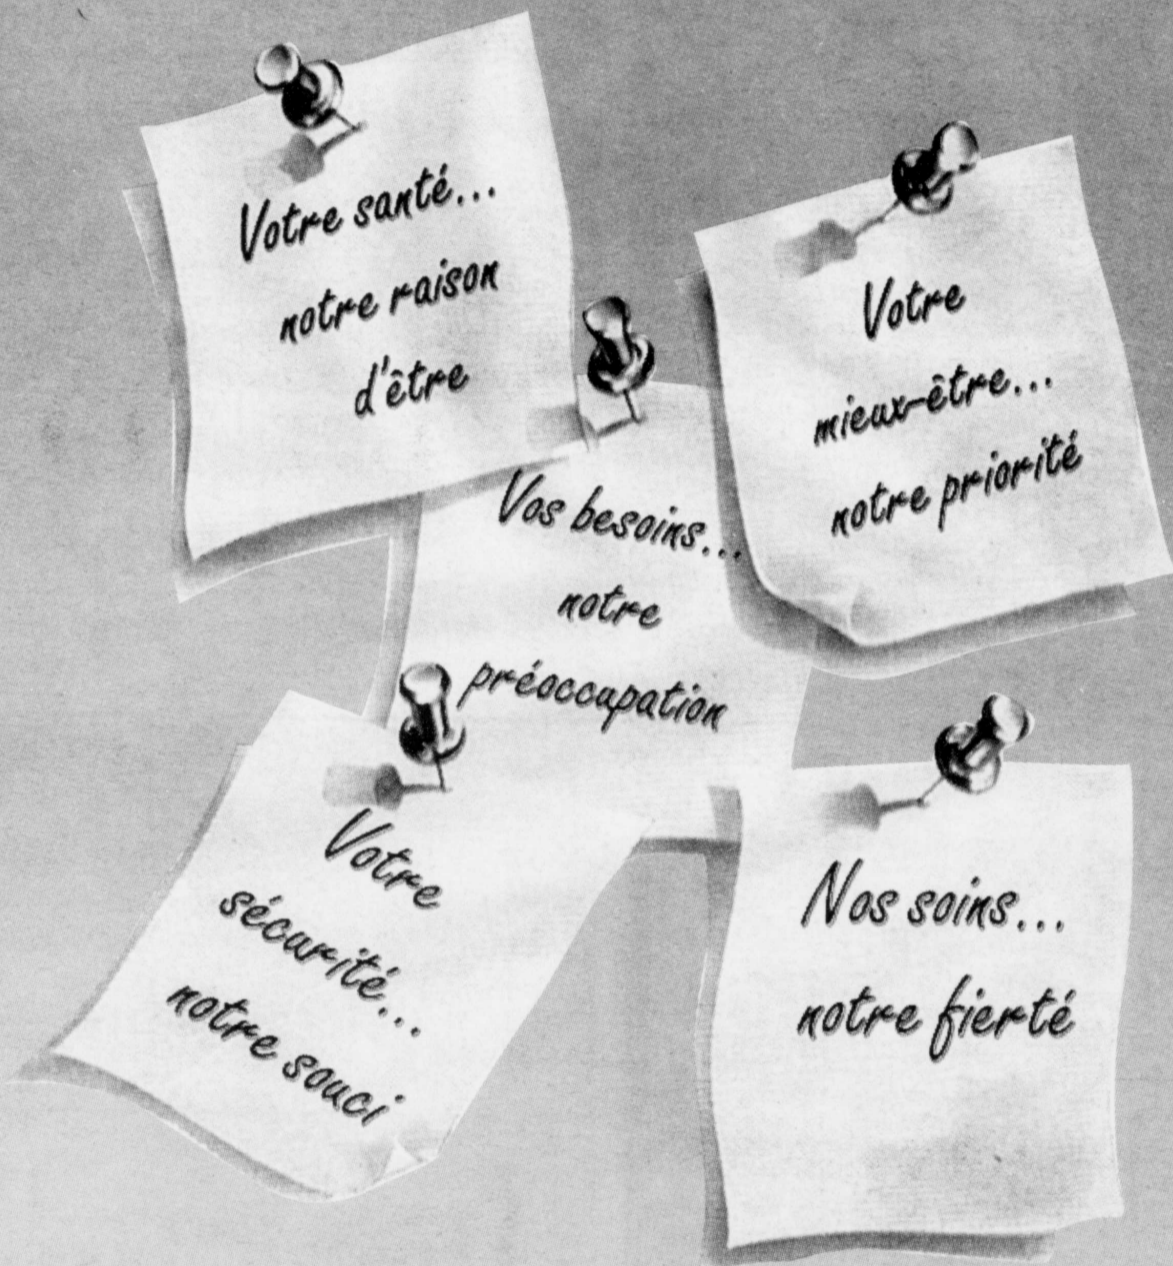 Votre santé...
notre raison
d'être
Votre
mieux-être...
notre priorité
Vos besoins...
notre
préoccupation
Votre
sécurité...
notre souci
Nos soins...
notre fierté